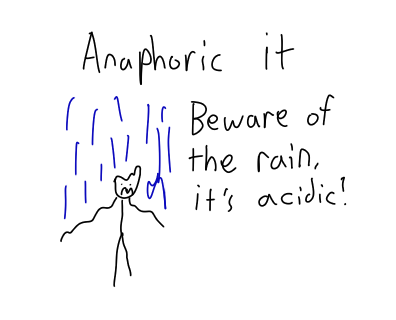 Anaphoric it
Beware of
the rain,
it's acidic!